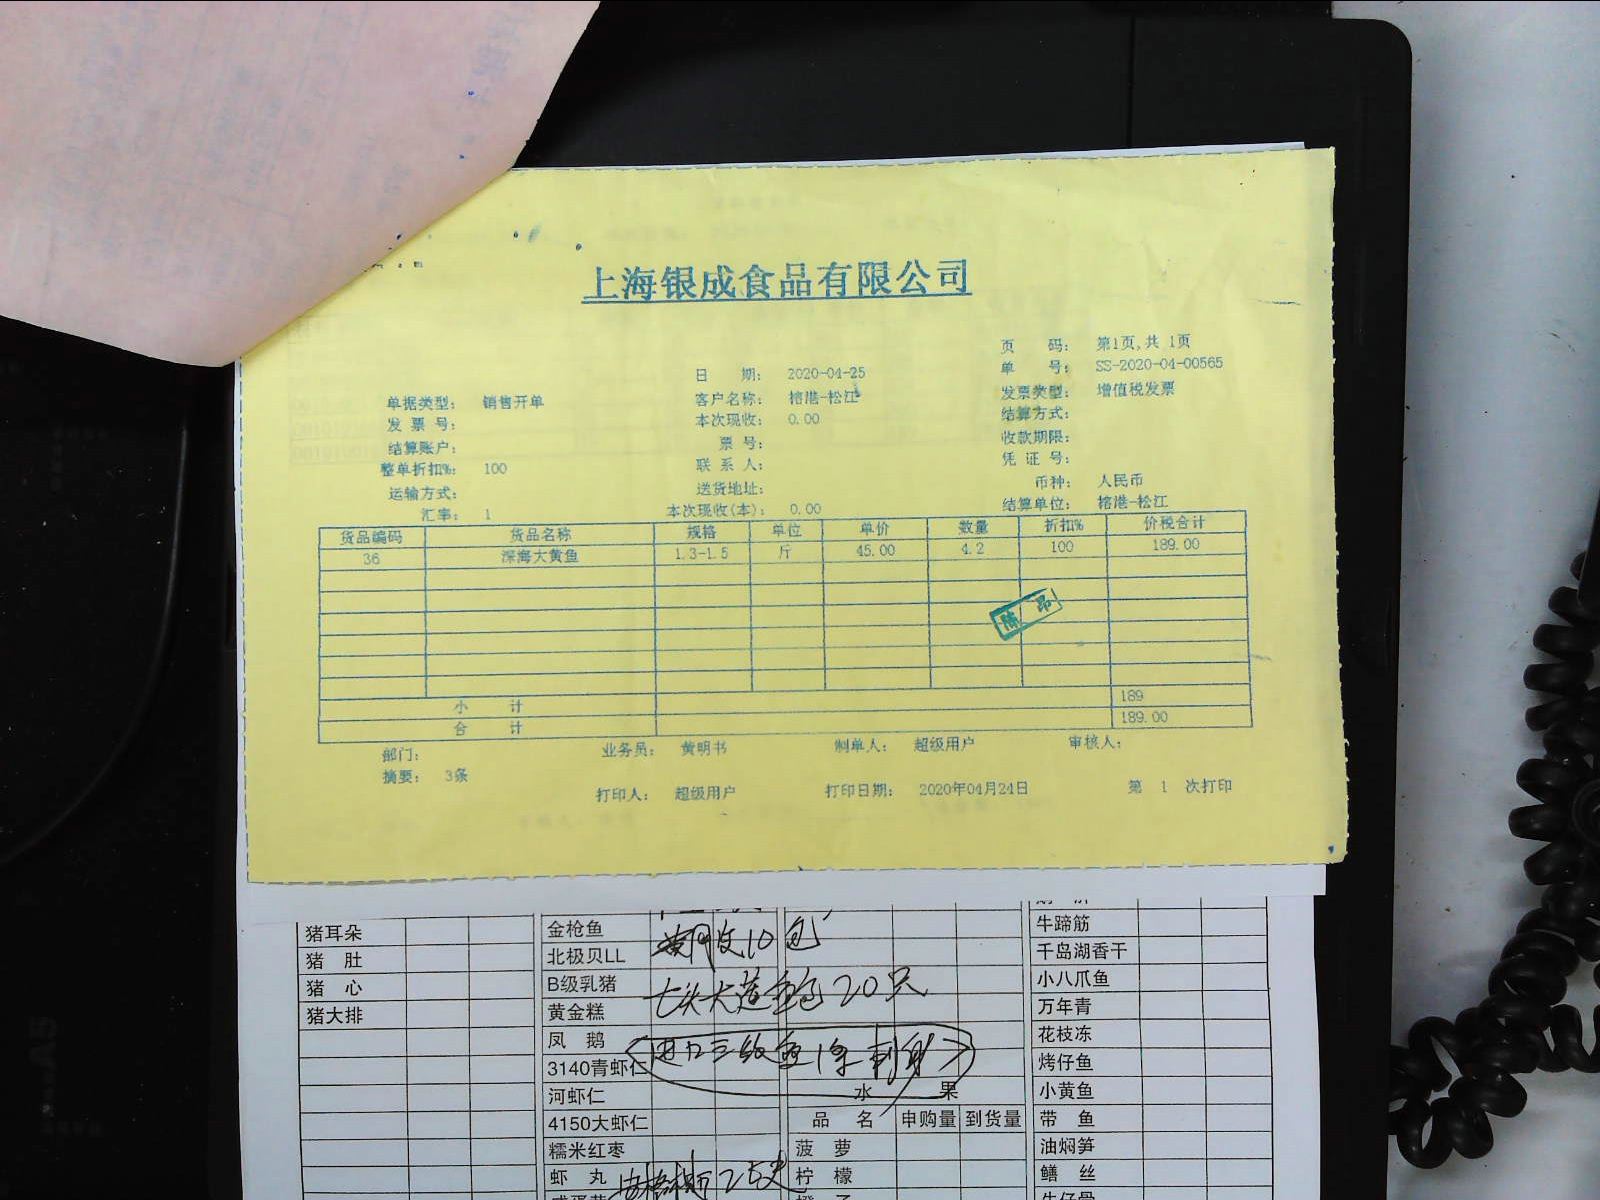 上海银成食品有限公司
页 码: 第1页,共 1页
日 期: 2020-04-25 单 号: SS-2020-04-00565
单据类型: 销售开单 客户名称: 榕港-松江 发票类型: 增值税发票
发 票 号: 本次现收: 0.00 结算方式:
结算账户: 票 号: 收款期限:
整单折扣%: 100 联 系 人: 凭 证 号:
运输方式: 送货地址: 币种: 人民币
汇率: 1 本次现收(本): 0.00 结算单位: 榕港-松江
货品编码 货品名称 规格 单位 单价 数量 折扣% 价税合计
36 深海大黄鱼 1.3-1.5 斤 45.00 4.2 100 189.00
小 计 189
合 计 189.00
部门: 业务员: 黄明书 制单人: 超级用户 审核人:
摘要: 3条
打印人: 超级用户 打印日期: 2020年04月24日 第 1 次打印
猪耳朵 金枪鱼 10包 牛蹄筋
猪 肚 北极贝LL 千岛湖香干
猪 心 B级乳猪 七头大连鲍 20只 小八爪鱼
猪大排 黄金糕 万年青
凤 鹅 花枝冻
3140青虾仁 烤仔鱼
河虾仁 水 果 小黄鱼
4150大虾仁 品 名 申购量 到货量 带 鱼
糯米红枣 菠 萝 油焖笋
虾 丸 柠 檬 鳝 丝